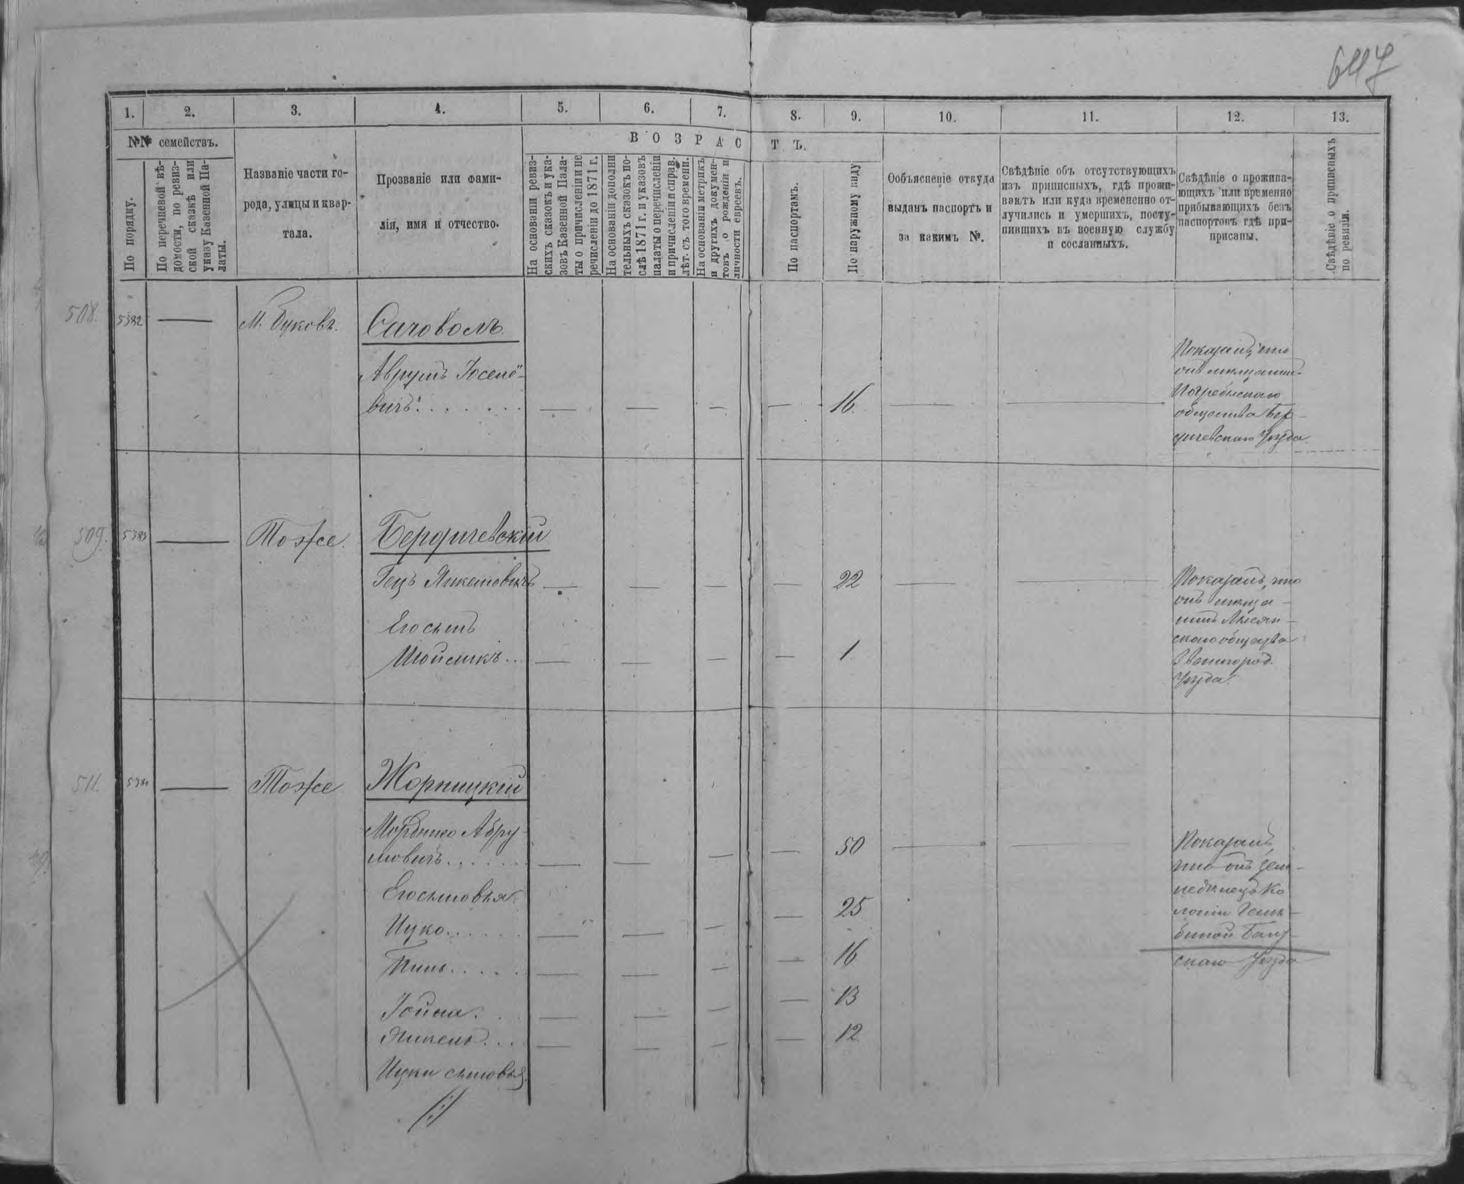 6117
1. 2. 3. 4. 5. 6. 7. 8. 9. 10. 11. 12. 13.
№№ семействъ.
В О З Р А С Т Ъ.
По порядку.
По перечневой вѣ-
домости, по ревиз-
ской сказкѣ или
указу Казенной Па-
латы.
Названіе части го-
рода, улицы и квар-
тала.
Прозваніе или фами-
лія, имя и отчество.
На основаніи ревиз-
скихъ сказокъ и ука-
зовъ Казенной Пала-
ты о причисленіи и не
речисленіи до 1871 г.
На основаніи дополни
тельныхъ сказокъ по-
слѣ 1871 г. и указовъ
палаты о перечисленіи
и причисленіи и справ.
лѣт. съ того времени.
На основаніи метрикъ
и другихъ докумен-
товъ о рожденіи и
личности евреевъ.
По паспортамъ.
По наружному виду
Ообъясненіе откуда
выданъ паспортъ и
за какимъ №.
Свѣдѣніе объ отсутствующихъ
изъ приписныхъ, гдѣ прожи-
ваютъ или куда временно от-
лучились и умершихъ, посту-
пившихъ въ военную службу
и сосланныхъ.
Свѣдѣніе о прожива-
ющихъ или временно
прибывающихъ безъ
паспортовъ гдѣ при-
писаны.
Свѣдѣніе о пришевыхъ
по ревизіи.
508. 5382 — М. Буковъ. Саговолъ
Аврумъ Іосело-
вичъ — — — — 16 — —
Показалъ, что
онъ мѣщанинъ
Погребыскаго
общества Бер-
дичевскаго Уѣзда.
509. 5383 — Тоже. Бердичевскій
Гецъ Янкелевичъ — — — — 22 — —
Его сынъ
Мойсикъ — — — — 1
Показалъ, что
онъ мѣща-
нинъ Лисян-
скаго общества
Звенигород.
Уѣзда.
511. 538 — Тоже Жорницкій
Мордко Абру-
мовичъ — — — — 50 — —
Его сыновья
Ицко — — — — 25
Пинь — — — — 16
Іойна — — — — 13
Янкель — — — — 12
Ицки сыновья
Показалъ,
что онъ зем-
ледѣлецъ Ко
лоніи
Балт-
скаго Уѣзда